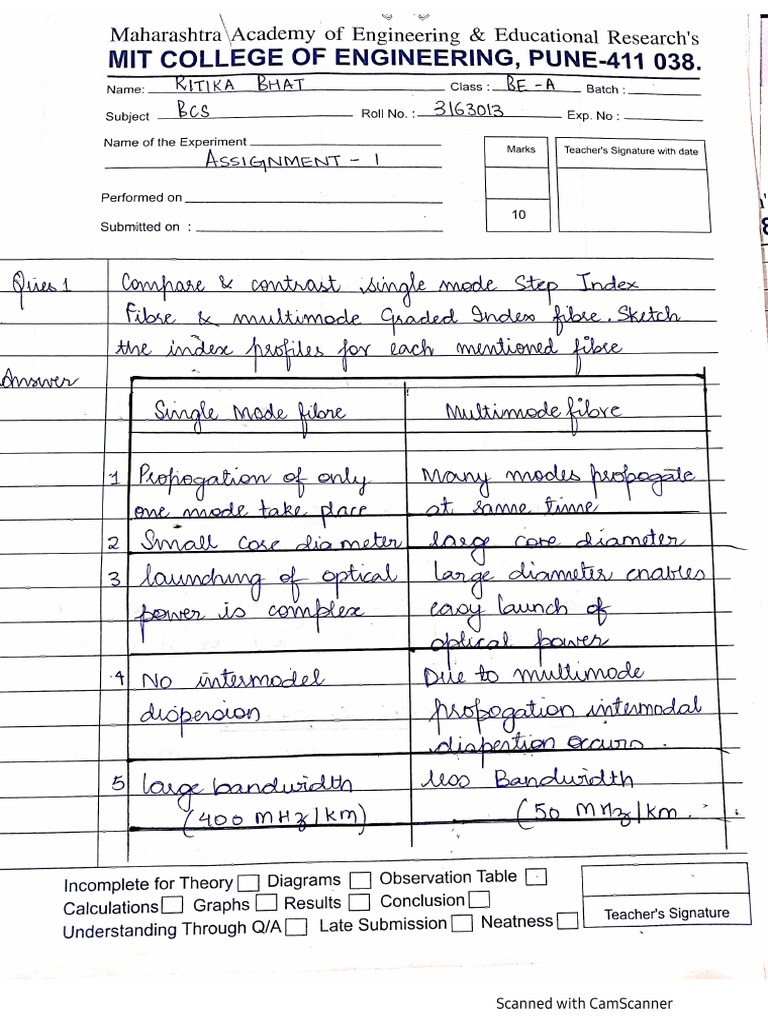 Maharashtra Academy of Engineering & Educational Research's
MIT COLLEGE OF ENGINEERING, PUNE-411 038.
Name: RITIKA BHAT Class : BE-A Batch :
Subject BCS Roll No. : 3163013 Exp. No :
Name of the Experiment
ASSIGNMENT - 1
Marks
Teacher's Signature with date
Performed on
10
Submitted on :
Ques 1 Compare & contrast single mode Step Index
Fibre & multimode Graded Index fibre. Sketch
the index profiles for each mentioned fibre
Answer
Single Mode fibre Multimode fibre
1 Propogation of only Many modes propogate
one mode take place at same time
2 Small core diameter large core diameter
3 launching of optical large diameter enables
power is complex easy launch of
optical power
4 No intermodel Due to multimode
dispersion propogation intermodal
dispertion occurs.
5 large bandwidth less Bandwidth
(400 MHz/km) (50 MHz/km.
Incomplete for Theory Diagrams Observation Table
Calculations Graphs Results Conclusion
Understanding Through Q/A Late Submission Neatness
Teacher's Signature
Scanned with CamScanner